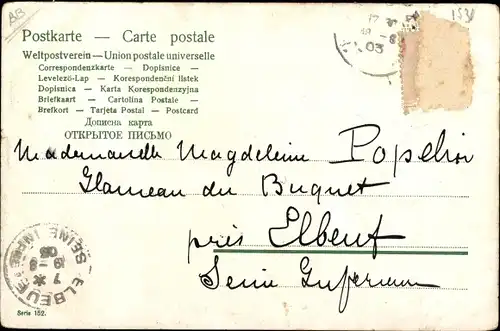 AB
1531
Postkarte — Carte postale
Weltpostverein — Union postale universelle
Correspondenzkarte — Dopisnice —
Levelező-Lap — Korespondenční lístek
Dopisnica — Karta Korespondenzyjna
Briefkaart — Cartolina Postale —
Brefkort — Tarjeta Postal — Postcard
Дописна карта
ОТКРЫТОЕ ПИСЬМО
03
Mademoiselle Magdeleine
Hameau du Buquet
près Elbeuf
Seine Inferieure
ELBEUF SEINE INFRE
7 *
Serie 152.